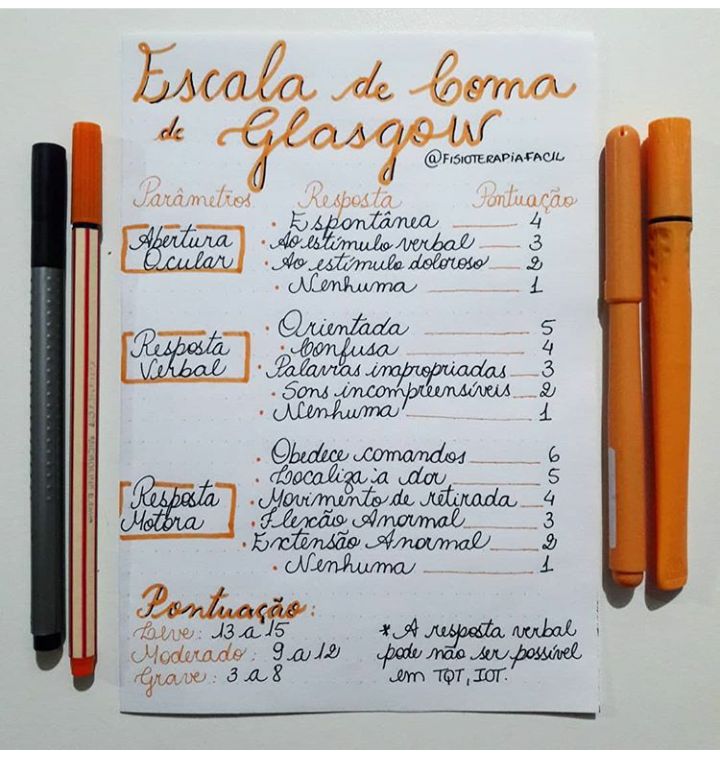 Escala de Coma
de Glasgow
@FISIOTERAPIAFACIL
Parâmetros Resposta Pontuação
Abertura Ocular
• Espontânea 4
• Ao estímulo verbal 3
• Ao estímulo doloroso 2
• Nenhuma 1
Resposta Verbal
• Orientada 5
• Confusa 4
• Palavras inapropriadas 3
• Sons incompreensíveis 2
• Nenhuma 1
Resposta Motora
• Obedece comandos 6
• Localiza a dor 5
• Movimento de retirada 4
• Flexão Anormal 3
• Extensão Anormal 2
• Nenhuma 1
Pontuação:
Leve: 13 a 15
Moderado: 9 a 12
Grave: 3 a 8
* A resposta verbal
pode não ser possível
em TQT, IOT.